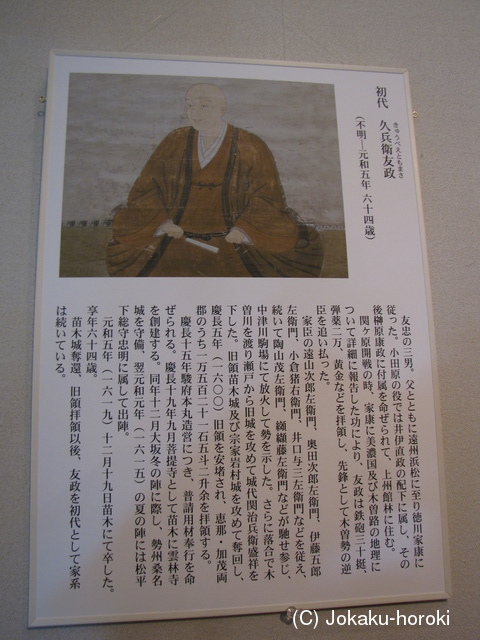 初代　久兵衛友政
きゅうべえともまさ
（不明―元和五年 六十四歳）
友忠の三男。父とともに遠州浜松に至り徳川家康に
従った。小田原の役では井伊直政の配下に属し、その
後榊原康政に付属を命ぜられて、上州館林に住む。
関ヶ原開戦の時、家康に美濃国及び木曽路の地理に
ついて詳細に報告した功により、友政は鉄砲三十挺、
弾薬二万、黄金などを拝領し、先鋒として木曽勢の逆
臣を追い払った。
家臣の遠山次郎左衛門、奥田次郎左衛門、伊藤五郎
左衛門、小倉猪右衛門、井口与三左衛門などを従え、
続いて陶山茂左衛門、纐纈藤左衛門などが馳せ参じ、
中津川駒場にて放火して勢を示した。さらに落合で木
曽川を渡り瀬戸から旧城を攻めて城代関治兵衛盛祥を
下した。旧領苗木城及び宗家岩村城を攻めて奪回し、
慶長五年（一六〇〇）旧領を安堵され、恵那・加茂両
郡のうち一万五百二十一石五斗二升余を拝領する。
慶長十五年駿府本丸造営につき、普請用材奉行を命
ぜられる。慶長十九年九月菩提寺として苗木に雲林寺
を創建する。同年十二月大坂冬の陣に際し、勢州桑名
城を守備、翌元和元年（一六一五）の夏の陣には松平
下総守忠明に属して出陣。
元和五年（一六一九）十二月十九日苗木にて卒した。
享年六十四歳。
苗木城奪還、旧領拝領以後、友政を初代として家系
は続いている。
(C) Jokaku-horoki